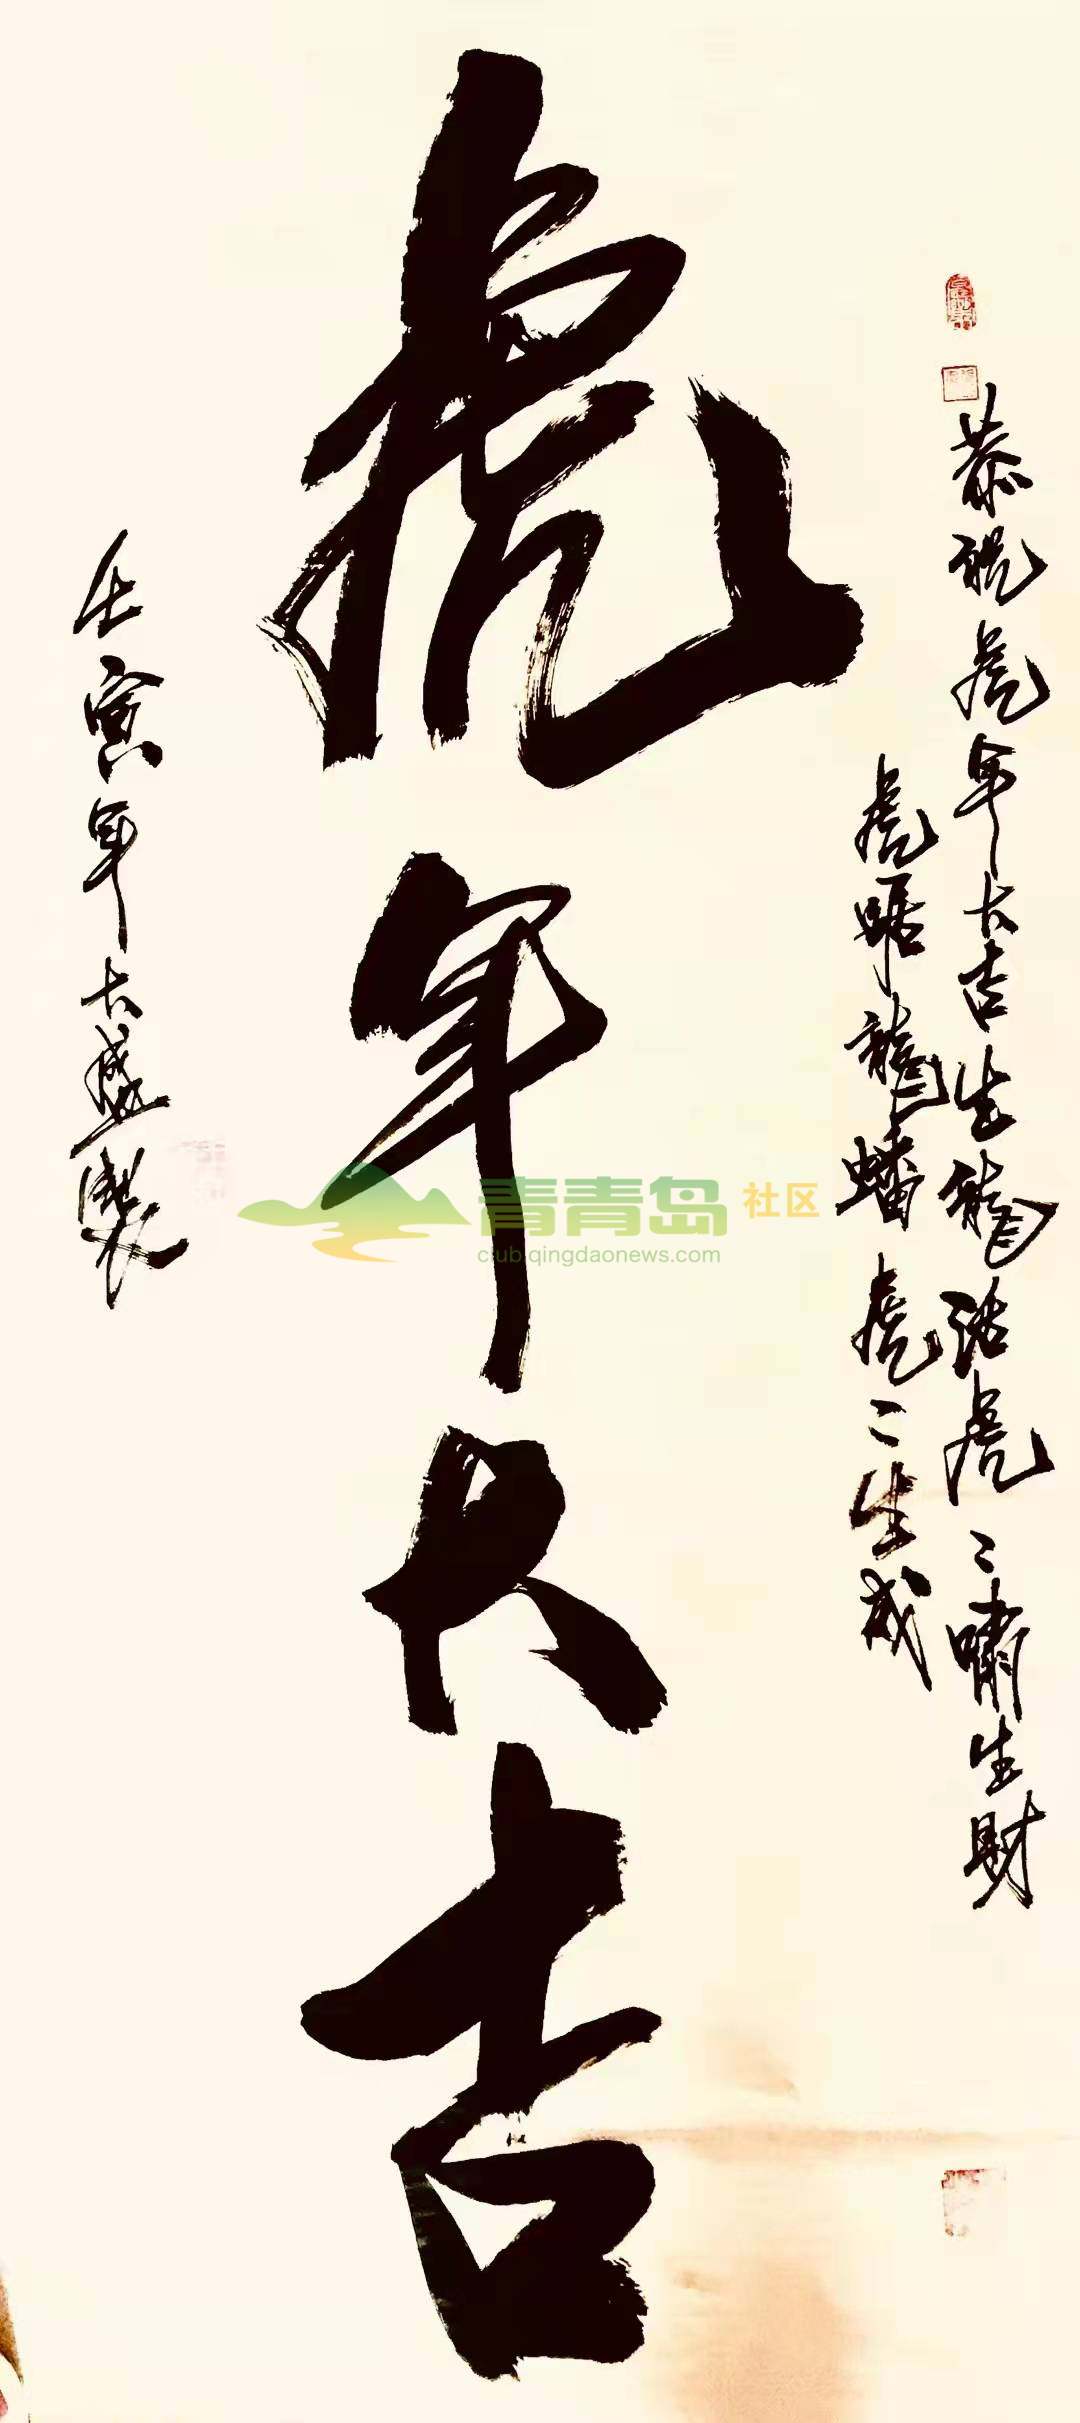 恭祝虎年大吉生龍活虎〻嘯生財
虎踞龍蟠虎〻生威
虎年大吉
壬寅年大盛製
青青岛社区
club.qingdaonews.com